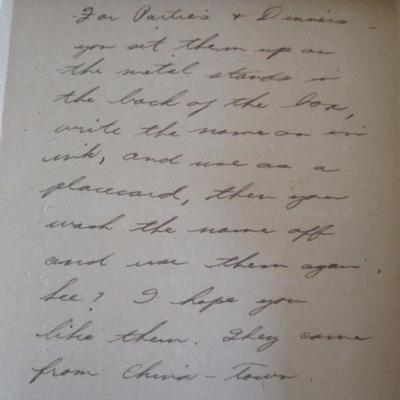 -For Parties & Dinners-
you set them up on
the metal stands in
the back of the box,
write the name on in
ink, and use as a
placecard, then you
wash the name off
and use them again.
See? I hope you
like them. They came
from China-Town.